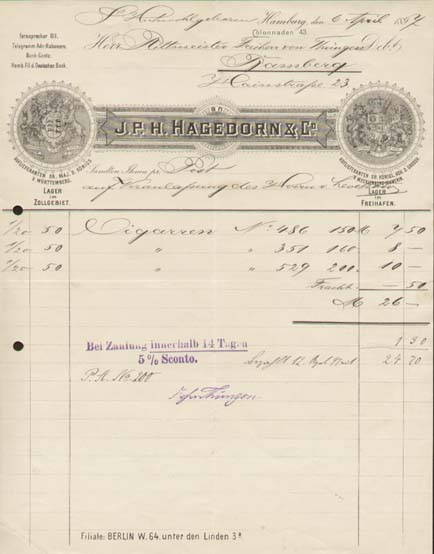 Fernsprecher 911.
Telegramm-Adr: Rabanera.
Bank-Conto:
Nordd. Fil. d. Deutschen Bank.
Hamburg, den 6 April 1897
Colonnaden 43.
Herrn Rittmeister Freiherr von Thüngen
Bamberg
Hainstraße 23
J.P.H. HAGEDORN & Co
HOFLIEFERANTEN SR. MAJ. D. KÖNIGS
V. WÜRTTEMBERG.
LAGER
IM
ZOLLGEBIET.
HOFLIEFERANTEN SR. KÖNIGL. HOH. D. GROSSH.
V. MECKLENBG-SCHWERIN.
LAGER
IM
FREIHAFEN.
Sandten Ihnen pr. Post
auf Veranlassung des Herrn
1/20 50 Cigarren No 486 150 M 7 50
1/20 50 " " 351 160 8 —
1/20 50 " " 529 200 10 —
Fracht — 50
M 26 —
Bei Zahlung innerhalb 14 Tagen
5% Sconto.
1 30
24 70
P.K. No 200
Filiale: BERLIN W. 64. unter den Linden 3a.